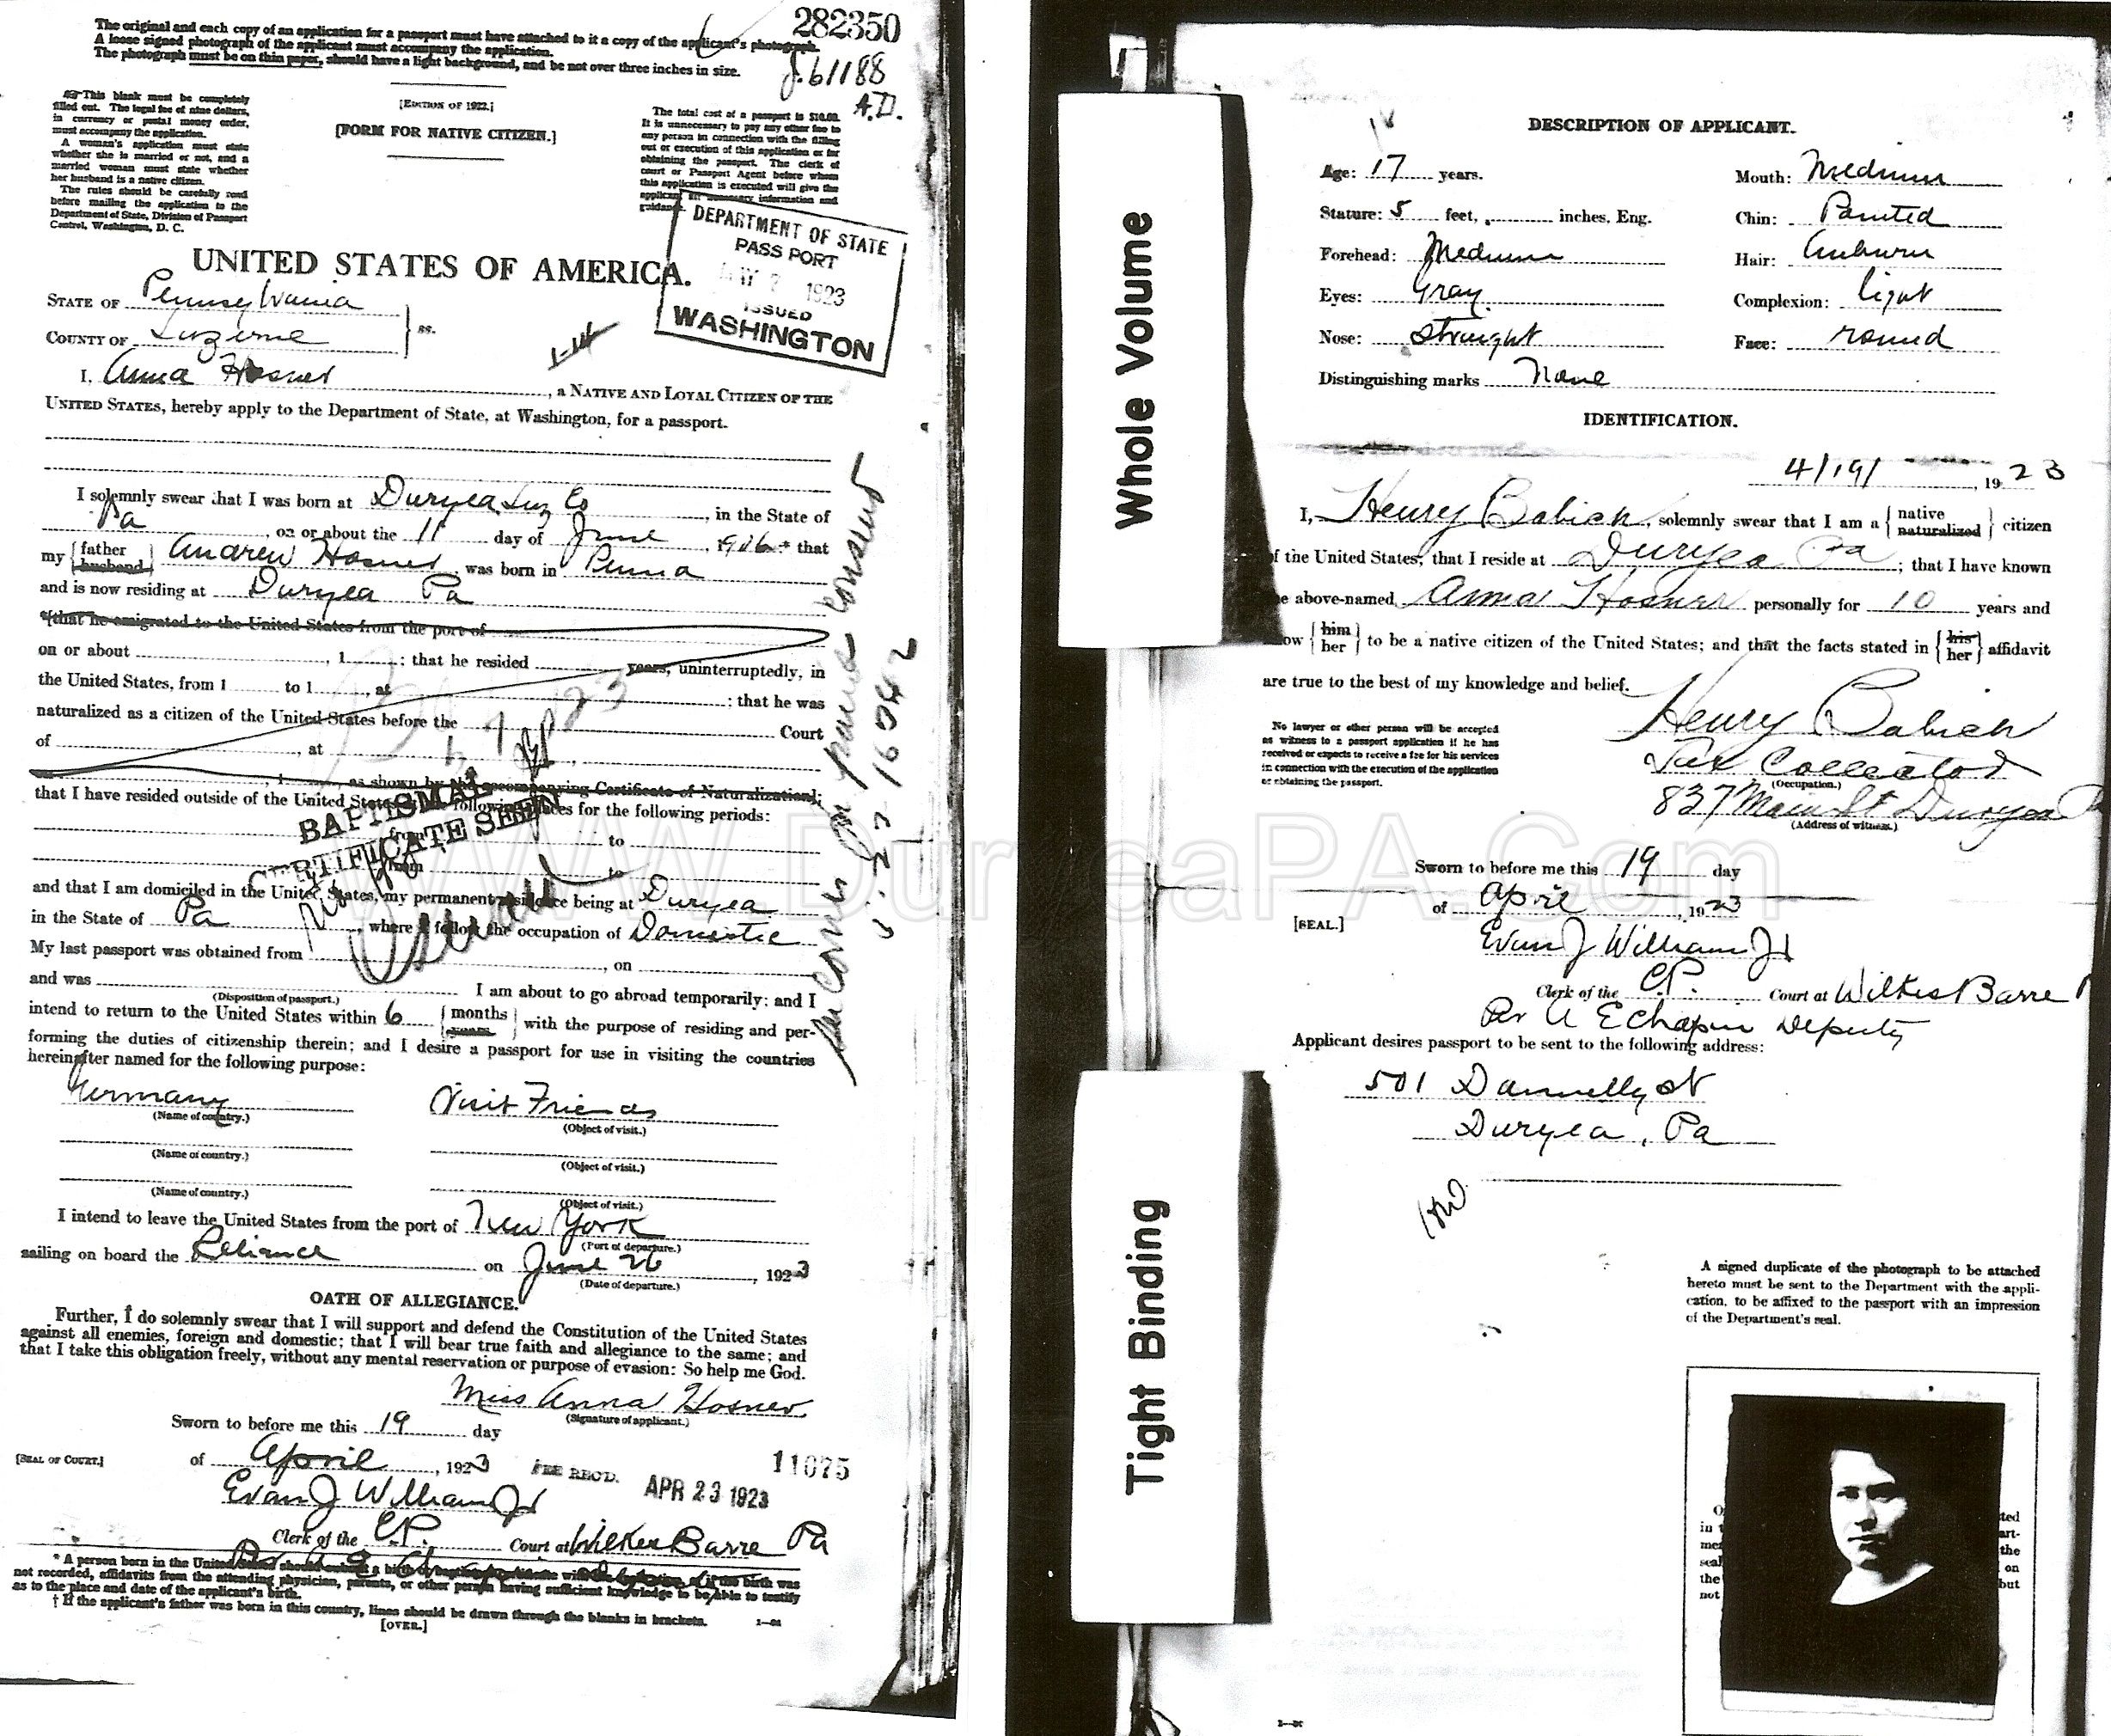 282350
The original and each copy of an application for a passport must have attached to it a copy of the applicant's photograph.
A loose signed photograph of the applicant must accompany the application.
The photograph must be on thin paper, should have a light background, and be not over three inches in size.
J.61188
A.D.
This blank must be completely
filled out. The legal fee of nine dollars,
in currency or postal money order,
must accompany the application.
A woman's application must state
whether she is married or not, and a
married woman must state whether
her husband is a native citizen.
The rules should be carefully read
before mailing the application to the
Department of State, Division of Passport
Control, Washington, D. C.
[EDITION OF 1922.]
[FORM FOR NATIVE CITIZEN.]
The total cost of a passport is $10.00.
It is unnecessary to pay any other fee to
any person in connection with the filling
out or execution of this application or for
obtaining the passport. The clerk of
court or Passport Agent before whom
this application is executed will give the
applicant all necessary information and
guidance.
DEPARTMENT OF STATE
PASS PORT
MAY 2 1923
ISSUED
WASHINGTON
UNITED STATES OF AMERICA.
STATE OF Pennsylvania
COUNTY OF Luzerne
ss.
I, Anna Hosner, a NATIVE AND LOYAL CITIZEN OF THE
UNITED STATES, hereby apply to the Department of State, at Washington, for a passport.
I solemnly swear that I was born at Duryea, Luz Co, in the State of
Pa, on or about the 11 day of June, 1906* that
my {father husband} Andrew Hosner was born in Penna
and is now residing at Duryea Pa
†[that he emigrated to the United States from the port of
on or about , 1 ; that he resided years, uninterruptedly, in
the United States, from 1 to 1 , at : that he was
naturalized as a citizen of the United States before the Court
of , at ,
1 , as shown by the accompanying Certificate of Naturalization];
that I have resided outside of the United States at the following places for the following periods:
from to
from to
BAPTISMAL
CERTIFICATE SEEN
and that I am domiciled in the United States, my permanent residence being at Duryea
in the State of Pa, where I follow the occupation of Domestic
My last passport was obtained from , on
and was I am about to go abroad temporarily; and I
(Disposition of passport.)
intend to return to the United States within 6 {months years} with the purpose of residing and per-
forming the duties of citizenship therein; and I desire a passport for use in visiting the countries
hereinafter named for the following purpose:
Germany Visit Friends
(Name of country.) (Object of visit.)
(Name of country.) (Object of visit.)
(Name of country.) (Object of visit.)
I intend to leave the United States from the port of New York
(Port of departure.)
sailing on board the Reliance on June 26, 1923
(Date of departure.)
OATH OF ALLEGIANCE.
Further, I do solemnly swear that I will support and defend the Constitution of the United States
against all enemies, foreign and domestic; that I will bear true faith and allegiance to the same; and
that I take this obligation freely, without any mental reservation or purpose of evasion: So help me God.
Miss Anna Hosner
(Signature of applicant.)
Sworn to before me this 19 day
[SEAL OF COURT.] of April, 1923
FEE REC'D. APR 23 1923
11075
Evan J William Jr
Clerk of the C.P. Court at Wilkes Barre Pa
* A person born in the United States should submit a birth or baptismal certificate with his application or if the birth was
not recorded, affidavits from the attending physician, parents, or other person having sufficient knowledge to be able to testify
as to the place and date of the applicant's birth.
† If the applicant's father was born in this country, lines should be drawn through the blanks in brackets.
[OVER.]
Whole Volume
Tight Binding
DESCRIPTION OF APPLICANT.
Age: 17 years. Mouth: Medium
Stature: 5 feet, inches, Eng. Chin: Pointed
Forehead: Medium Hair: Auburn
Eyes: Gray Complexion: light
Nose: straight Face: round
Distinguishing marks None
IDENTIFICATION.
4/19/ 1923
I, Henry Babich, solemnly swear that I am a {native naturalized} citizen
of the United States; that I reside at Duryea Pa; that I have known
the above-named Anna Hosner personally for 10 years and
know {him her} to be a native citizen of the United States; and that the facts stated in {his her} affidavit
are true to the best of my knowledge and belief.
Henry Babich
No lawyer or other person will be accepted
as witness to a passport application if he has
received or expects to receive a fee for his services
in connection with the execution of the application
or obtaining the passport.
Tax Collector
(Occupation.)
837 Main St Duryea
(Address of witness.)
WWW.DuryeaPA.Com
Sworn to before me this 19 day
of April, 1923
[SEAL.]
Evan J William Jr
Clerk of the C.P. Court at Wilkes Barre
Per A E Chapin Deputy
Applicant desires passport to be sent to the following address:
501 Donnelly St
Duryea, Pa
A signed duplicate of the photograph to be attached
hereto must be sent to the Department with the appli-
cation, to be affixed to the passport with an impression
of the Department's seal.